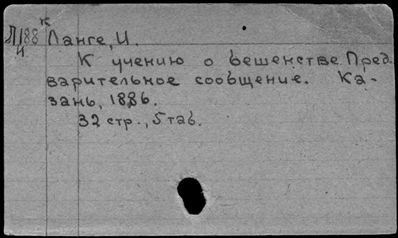 К
Л188 Ланге, И.
И
К учению о бешенстве. Пред-
варительное сообщение. Ка-
зань, 1886.
32 стр., 5 таб.